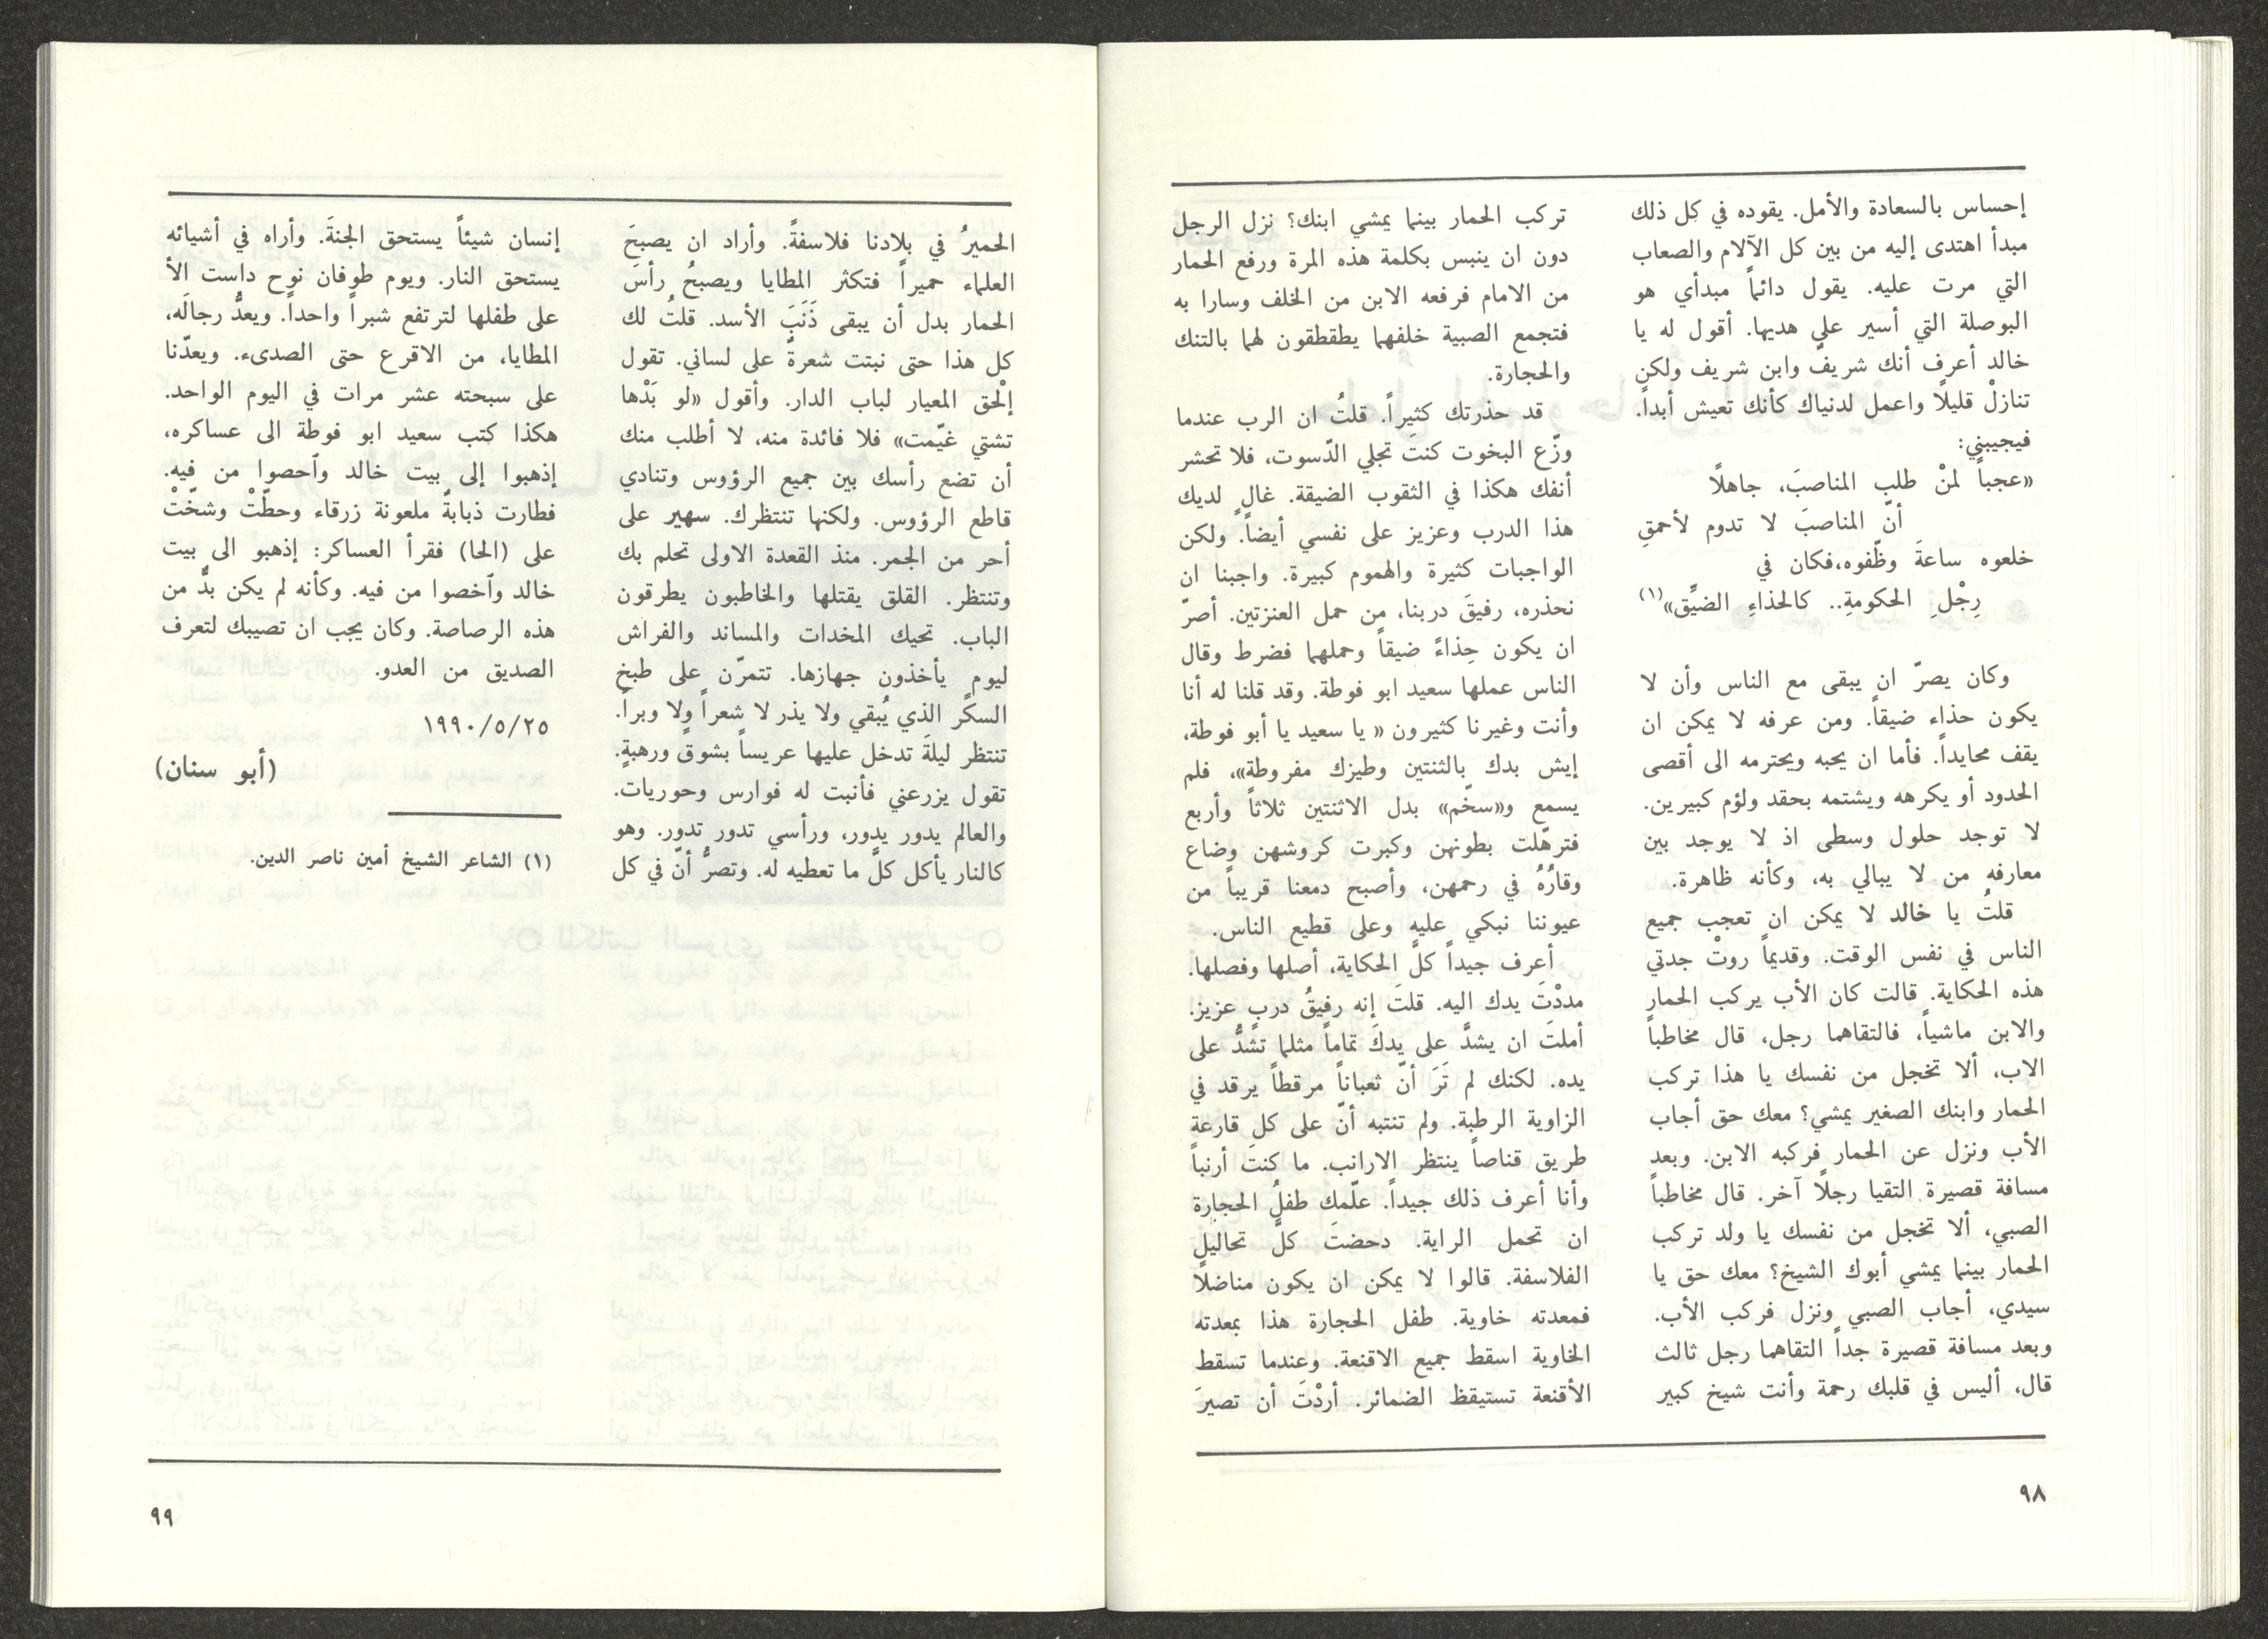 إحساس بالسعادة والأمل. يقوده في كل ذلك
مبدأ اهتدى إليه من بين كل الآلام والصعاب
التي مرت عليه. يقول دائماً مبدأي هو
البوصلة التي أسير على هديها. أقول له يا
خالد أعرف أنك شريفٌ وابن شريف ولكن
تنازلْ قليلاً واعمل لدنياك كأنك تعيش أبداً.
فيجيبني:
«عجباً لمنْ طلب المناصبَ، جاهلًا
أنّ المناصبَ لا تدوم لأحمقِ
خلعوه ساعةَ وظّفوه،فكان في
رِجْلِ الحكومةِ.. كالحذاءِ الضيِّق»(١)
وكان يصرّ ان يبقى مع الناس وأن لا
يكون حذاء ضيقاً. ومن عرفه لا يمكن ان
يقف محايداً. فأما ان يحبه ويحترمه الى أقصى
الحدود أو يكرهه ويشتمه بحقد ولؤم كبيرين.
لا توجد حلول وسطى اذ لا يوجد بين
معارفه من لا يبالي به، وكأنه ظاهرة.
قلتُ يا خالد لا يمكن ان تعجب جميع
الناس في نفس الوقت. وقديماً روتْ جدتي
هذه الحكاية. قالت كان الأب يركب الحمار
والابن ماشياً، فالتقاهما رجل، قال مخاطباً
الاب، ألا تخجل من نفسك يا هذا تركب
الحمار وابنك الصغير يمشي؟ معك حق أجاب
الأب ونزل عن الحمار فركبه الابن. وبعد
مسافة قصيرة التقيا رجلًا آخر. قال مخاطباً
الصبي، ألا تخجل من نفسك يا ولد تركب
الحمار بينما يمشي أبوك الشيخ؟ معك حق يا
سيدي، أجاب الصبي ونزل فركب الأب.
وبعد مسافة قصيرة جداً التقاهما رجل ثالث
قال، أليس في قلبك رحمة وأنت شيخ كبير
تركب الحمار بينما يمشي ابنك؟ نزل الرجل
دون ان ينبس بكلمة هذه المرة ورفع الحمار
من الامام فرفعه الابن من الخلف وسارا به
فتجمع الصبية خلفهما يطقطقون لهما بالتنك
والحجارة.
قد حذرتك كثيراً. قلتُ ان الرب عندما
وزّع البخوت كنتَ تجلي الدّسوت، فلا تحشر
أنفك هكذا في الثقوب الضيقة. غالٍ لديك
هذا الدرب وعزيز على نفسي أيضاً. ولكن
الواجبات كثيرة والهموم كبيرة. واجبنا ان
نحذره، رفيقَ دربنا، من حمل العنزتين. أصرّ
ان يكون حِذاءً ضيقاً وحملهما فضرط وقال
الناس عملها سعيد ابو فوطة. وقد قلنا له أنا
وأنت وغيرنا كثيرون « يا سعيد يا أبو فوطة،
إيش بدك بالثنتين وطيزك مفروطة»، فلم
يسمع و«سخّم» بدل الاثنتين ثلاثاً وأربع
فترهّلت بطونهن وكبرت كروشهن وضاع
وقارُهُ في رحمهن، وأصبح دمعنا قريباً من
عيوننا نبكي عليه وعلى قطيع الناس.
أعرف جيداً كلَّ الحكاية، أصلها وفصلها.
مددْتَ يدك اليه. قلتَ إنه رفيقُ دربٍ عزيز.
أملتَ ان يشدَّ على يدكَ تماماً مثلما تشدُّ على
يده. لكنك لم تَرَ أنّ ثعباناً مرقطاً يرقد في
الزاوية الرطبة. ولم تنتبه أنّ على كل قارعة
طريق قناصاً ينتظر الارانب. ما كنتَ أرنباً
وأنا أعرف ذلك جيداً. علّمك طفلُ الحجارة
ان تحمل الراية. دحضتَ كلَّ تحاليلِ
الفلاسفة. قالوا لا يمكن ان يكون مناضلًا
فمعدته خاوية. طفل الحجارة هذا بمعدته
الخاوية اسقط جميع الاقنعة. وعندما تسقط
الأقنعة تستيقظ الضمائر. أردْتَ أن تصيرَ
٩٨
الحميرُ في بلادنا فلاسفةً. وأراد ان يصبحَ
العلماء حميراً فتكثر المطايا ويصبحُ رأسَ
الحمار بدل أن يبقى ذَنَبَ الأسد. قلتُ لك
كل هذا حتى نبتت شعرةٌ على لساني. تقول
إلْحق المعيار لباب الدار. وأقول «لو بَدْها
تشتي غيّمت» فلا فائدة منه، لا أطلب منك
أن تضع رأسك بين جميع الرؤوس وتنادي
قاطع الرؤوس. ولكنها تنتظرك. سهير على
أحر من الجمر. منذ القعدة الاولى تحلم بك
وتنتظر. القلق يقتلها والخاطبون يطرقون
الباب. تحيك المخدات والمساند والفراش
ليوم يأخذون جهازها. تتمرّن على طبخ
السكّر الذي يُبقي ولا يذر لا شعراً ولا وبراً.
تنتظر ليلةَ تدخل عليها عريساً بشوقٍ ورهبةٍ.
تقول يزرعني فأنبت له فوارس وحوريات.
والعالم يدور يدور، ورأسي تدور تدور. وهو
كالنار يأكل كلَّ ما تعطيه له. وتصرُّ أنّ في كل
إنسان شيئاً يستحق الجنةَ. وأراه في أشيائه
يستحق النار. ويوم طوفان نوح داست الأ
على طفلها لترتفع شبراً واحداً. ويعدُّ رجالَه،
المطايا، من الاقرع حتى الصدىء. ويعدّنا
على سبحته عشر مرات في اليوم الواحد.
هكذا كتب سعيد ابو فوطة الى عساكره،
إذهبوا إلى بيت خالد وٱحصوا من فيه.
فطارت ذبابةٌ ملعونة زرقاء وحطّتْ وشخّتْ
على (الحا) فقرأ العساكر: إذهبو الى بيت
خالد وٱخصوا من فيه. وكأنه لم يكن بدٌّ من
هذه الرصاصة. وكان يجب ان تصيبك لتعرف
الصديق من العدو.
١٩٩٠/٥/٢٥
(أبو سنان)
(١) الشاعر الشيخ أمين ناصر الدين.
٩٩